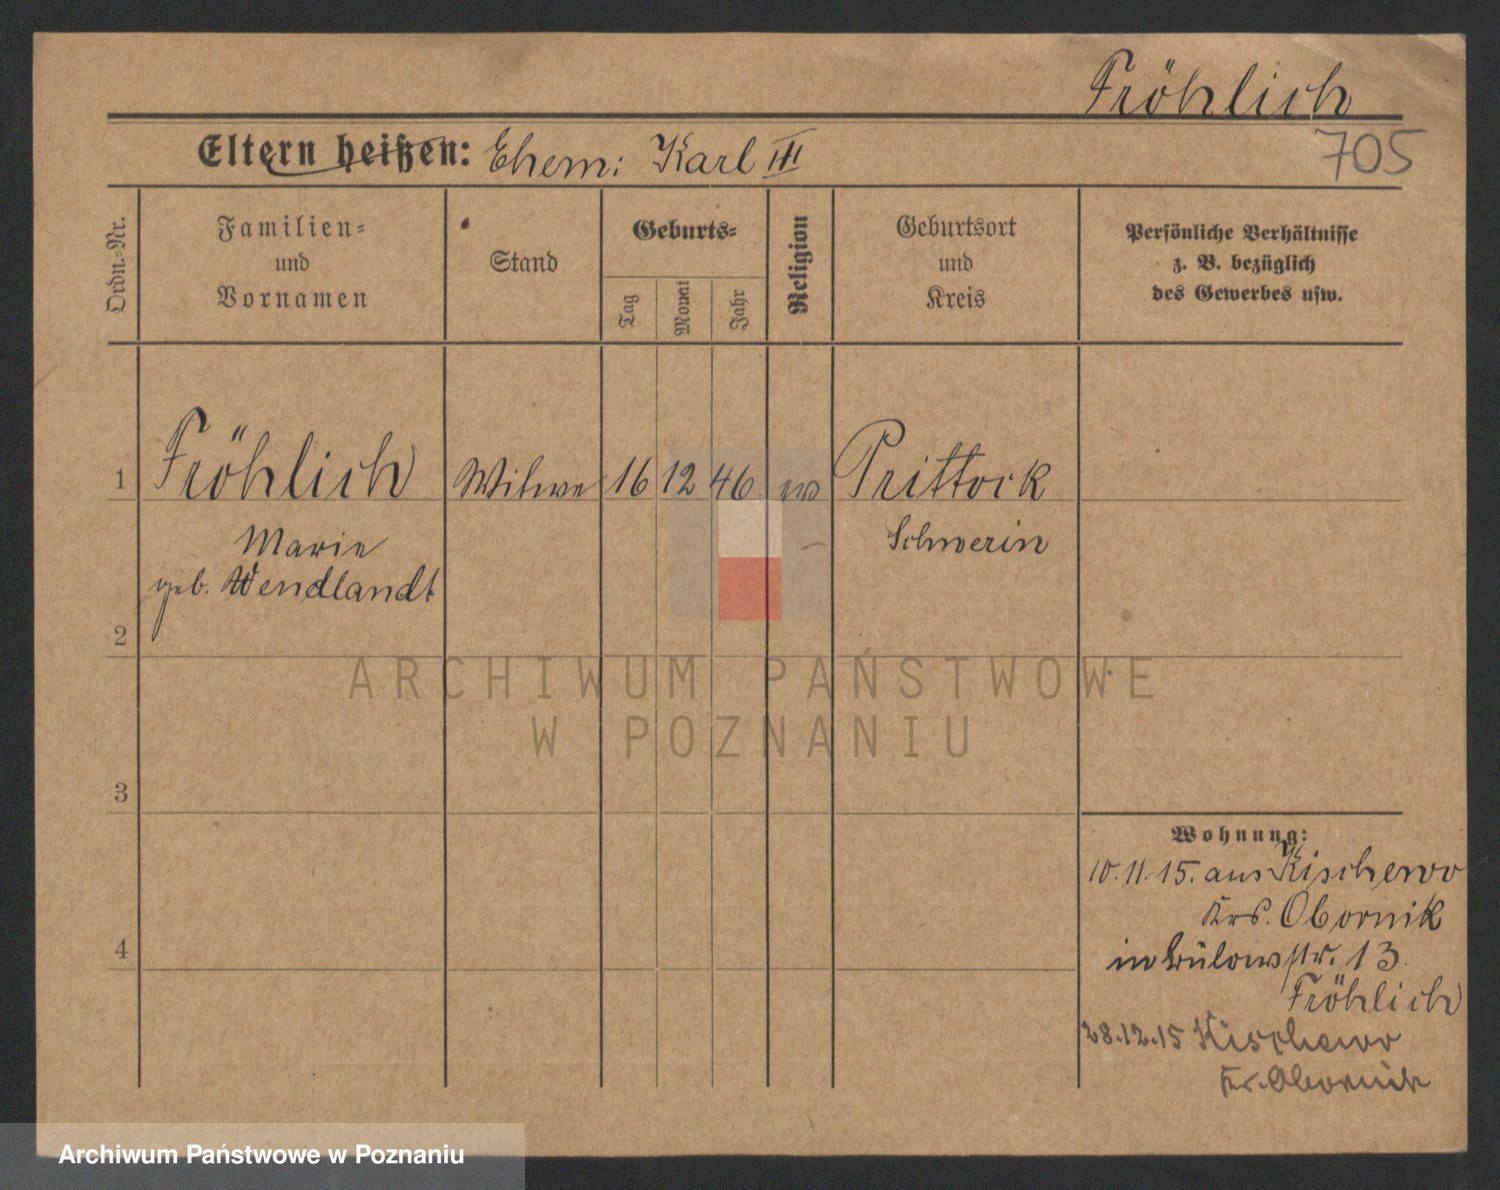 Fröhlich
705
Eltern heißen: Ehem: Karl III
Ordn.-Nr.
Familien- und Vornamen
Stand
Geburts-
Tag
Monat
Jahr
Religion
Geburtsort und Kreis
Persönliche Verhältnisse
z. B. bezüglich
des Gewerbes usw.
1 Fröhlich Witwe 16 12 46 ev Prittock
Marie Schwerin
geb. Wendlandt
2
3
4
ARCHIWUM PAŃSTWOWE
W POZNANIU
Wohnung:
10.11.15. aus Kischewo
Krs. Obornik
in Bülowstr. 13
Fröhlich
28.12.15 Kischewo
Kr. Obornik
Archiwum Państwowe w Poznaniu